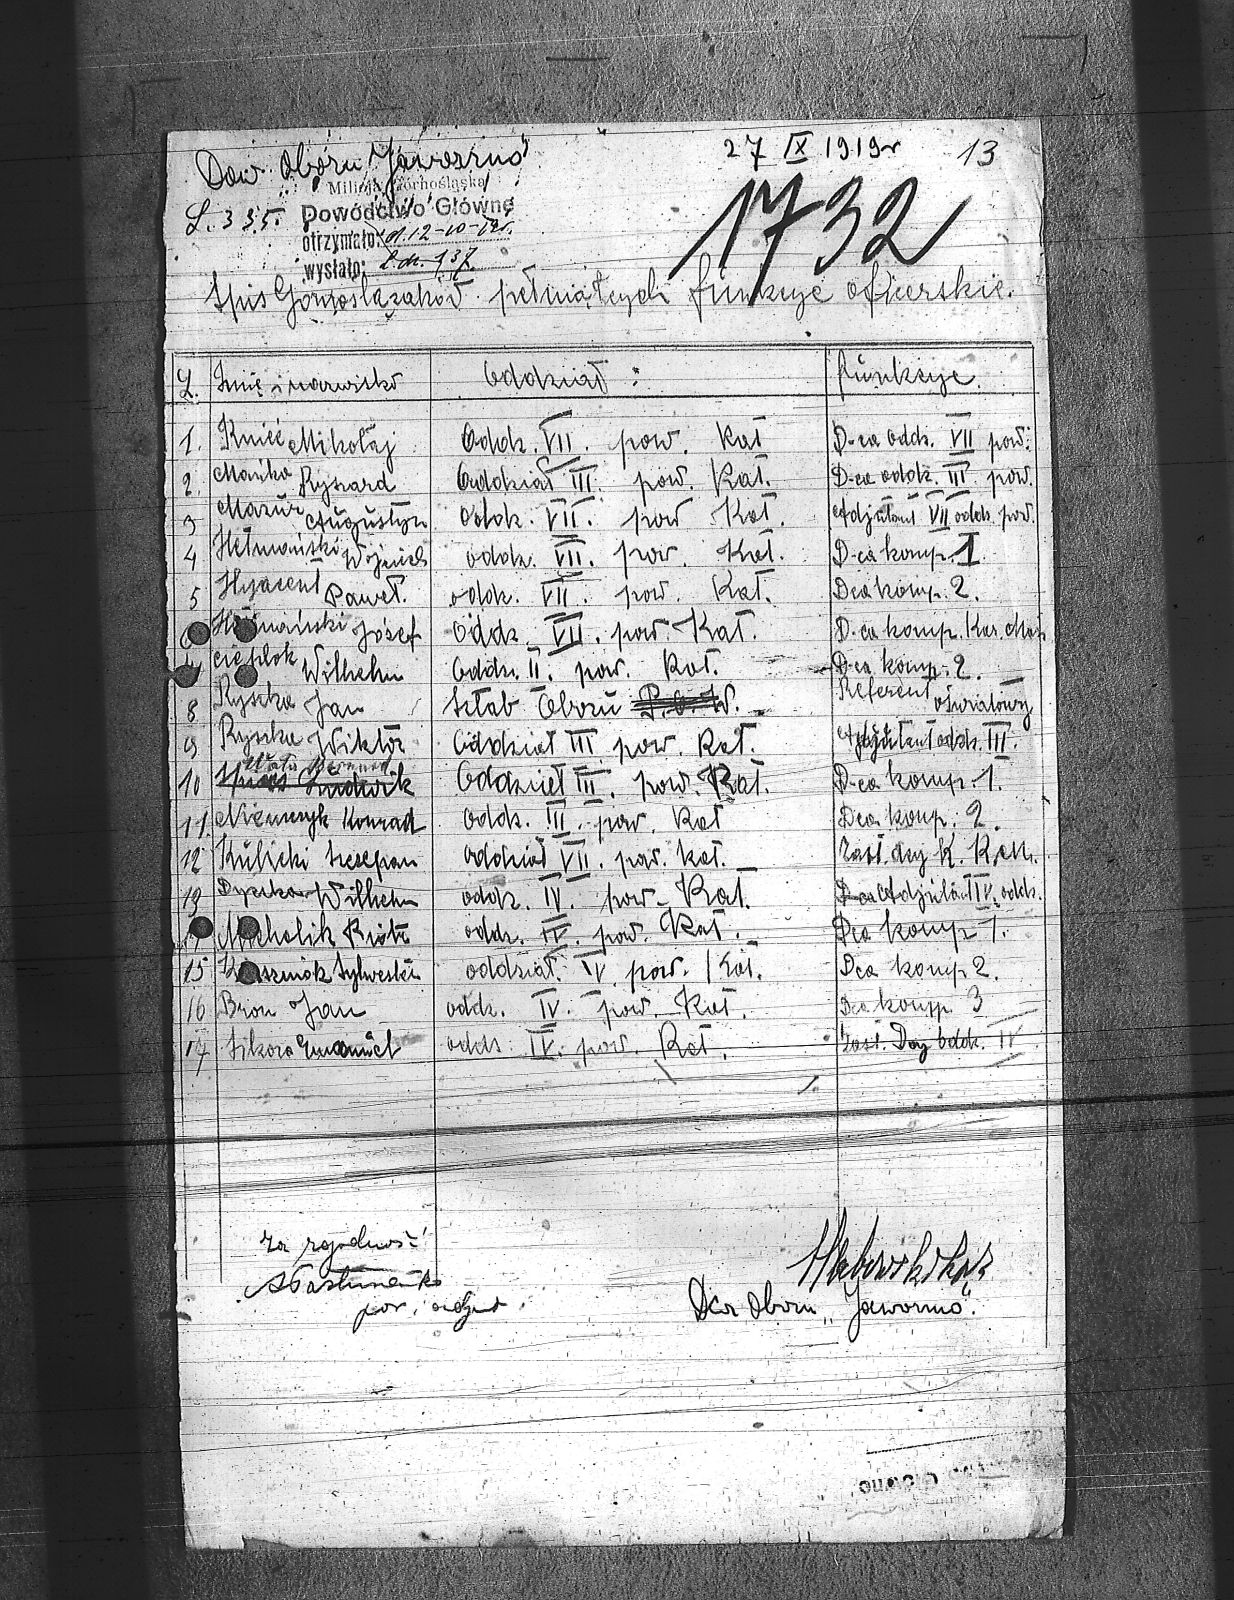 Dow. Obozu "Jaworzno"
27 IX 1919r
13
L. 335.
Milicja Górnośląska
Dowództwo Główne
otrzymało: d. 12-10-19r.
wysłało: L.dz. 137.
1732
Spis Górnoślązaków pełniących funkcje oficerskie.
L. Imię i nazwisko Oddział: funkcyje
1. Knieć Mikołaj Oddz. VII. pow. Kat D-ca oddz. VII pow.
2. Mańka Ryszard Oddział III pow. Kat. D-ca oddz. III pow.
3 Mazur Augustyn oddz. VII. pow Kat. Adjutant VII oddz. pow.
4 Hetmański Wojciech oddz. VII. pow. Kat. D-ca komp. 1
5 Hyacent Paweł. oddz. VII. pow. Kat. Dca komp. 2.
Józef Oddz. VII. pow. Kat. D-ca komp. Kar. Masz
Cieplok Wilhelm Oddz. II. pow. Kat. D-ca komp. 2.
8 Ryszka Jan Sztab Obozu P.O.W. Referent oświatowy
9 Ryszka Wiktor Oddział III pow. Kat. Adjutant oddz. III.
10 Ludwik Oddział III. pow. Kat. D-ca komp. 1.
11. Niemczyk Konrad oddz. III. pow. Kat Dca komp. 2.
12 Kulicki Szczepan oddział VII. pow. Kat. Zast. dcy K. K.M.
13 Dyrska Wilhelm oddz. IV. pow. Kat. D-ca Adjutant IV. oddz.
Michalik Piotr oddz. IV. pow. Kat. Dca komp 1.
15 Sylwester oddział IV pow. Kat. Dca komp 2.
16 Bron Jan oddz. IV. pow. Kat. Dca komp. 3
17 Sikora Emanuel oddz. IV. pow. Kat. Zast. Dcy Oddz. IV
Za zgodność
por. i adjut.
Dca Obozu "Jaworzno".